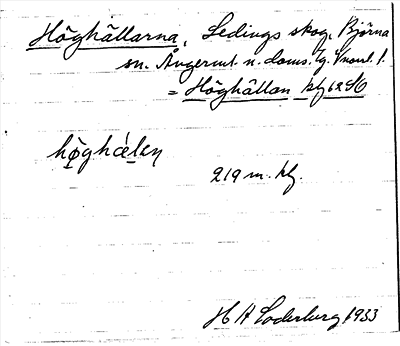 Höghällarna, Ledings skog, Björna
sn. Ångerml. n. doms.
= Höghällan kbl 62 SO
höghælen
219 m. kbl.
H A Söderberg 1933